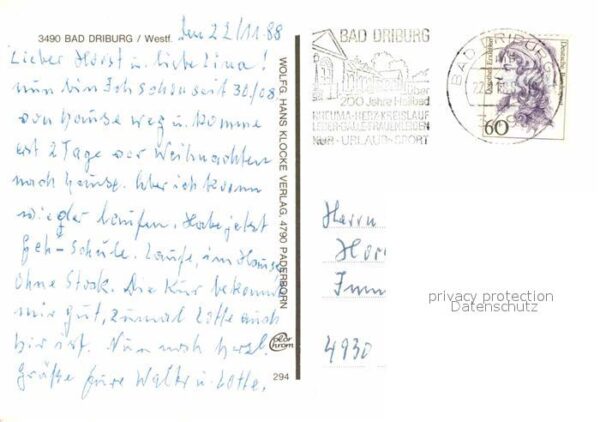 3490 BAD DRIBURG / Westf.
den 22/11.88
Lieber Horst u. liebe Lina!
nun bin Ich schon seit 30/08.
von Hause weg u. komme
erst 2 Tage vor Weihnachten
nach Hause. Aber ich kann
wieder laufen. Habe jetzt
Geh-Schule. Laufe, im Hause
Ohne Stock. Die Kur bekommt
mir gut, zumal Lotte auch
hir ist. Nun noch herzl.
Grüße Eure Walter u. Lotte.
WOLFG. HANS KLOCKE VERLAG, 4790 PADERBORN
color chrom
294
BAD DRIBURG
über
200 Jahre Heilbad
RHEUMA-HERZ-KREISLAUF
LEBER-GALLE-FRAUENLEIDEN
KUR-URLAUB-SPORT
BAD DRIBURG
Deutsche Bundespost
60
Herrn
Hor
Imm
4930
privacy protection
Datenschutz